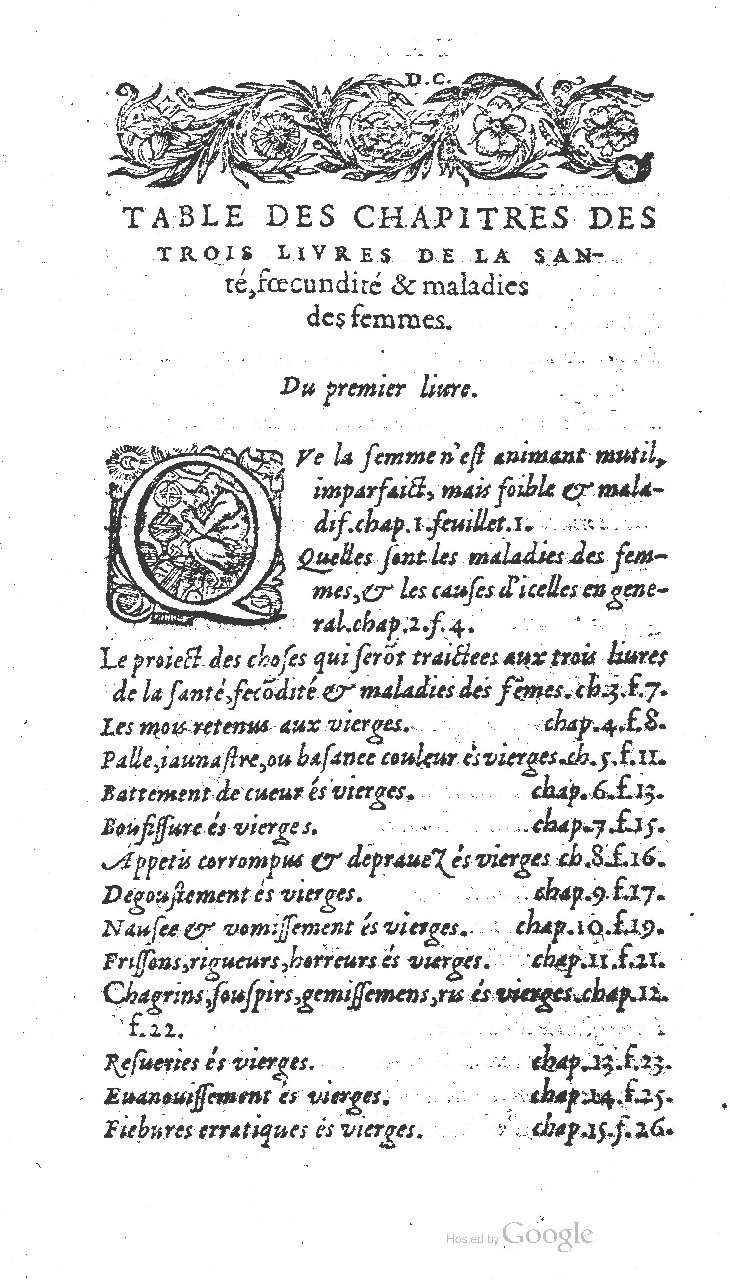 D.C.
TABLE DES CHAPITRES DES
TROIS LIVRES DE LA SAN-
té, fœcundité & maladies
des femmes.
Du premier liure.
QVe la femme n'est animant mutil,
imparfaict, mais foible & mala-
dif.chap.1.feuillet.1.
Quelles sont les maladies des fem-
mes, & les causes d'icelles en gene-
ral.chap.2.f.4.
Le proiect des choses qui serõt traictees aux trois liures
de la santé, fecõdité & maladies des fẽmes.ch.3.f.7.
Les mois retenus aux vierges. chap.4.f.8.
Palle, iaunastre, ou basanee couleur és vierges.ch.5.f.11.
Battement de cueur és vierges. chap.6.f.13.
Boufissure és vierges. chap.7.f.15.
Appetis corrompus & deprauez és vierges ch.8.f.16.
Degoustement és vierges. chap.9.f.17.
Nausee & vomissement és vierges. chap.10.f.19.
Frissons, rigueurs, horreurs és vierges. chap.11.f.21.
Chagrins, souspirs, gemissemens, ris és vierges.chap.12.
f.22.
Resueries és vierges. chap.13.f.23.
Euanouissement és vierges. chap.14.f.25.
Fiebures erratiques és vierges. chap.15.f.26.
Hosted by Google